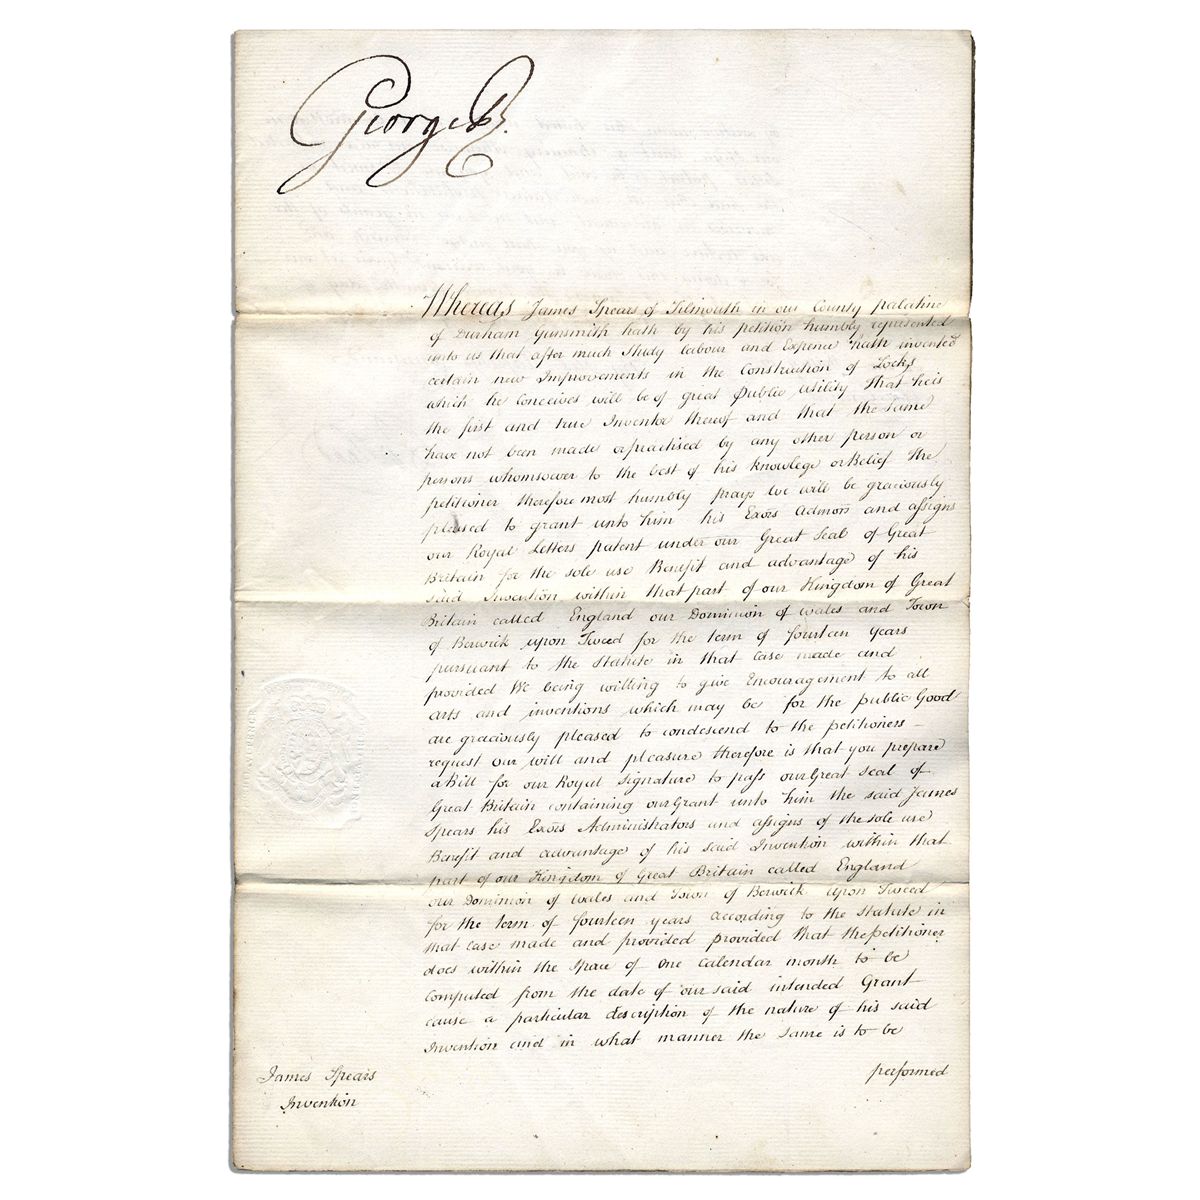 George R.
Whereas James Spears of Tilmouth in our County palatine
of Durham Gunsmith hath by his petition humbly represented
unto us that after much Study labour and Expence hath invented
certain new Improvements in the Construction of Locks
which he Conceives will be of great Public utility that he is
the first and true Inventor thereof and that the same
have not been made or practised by any other person or
persons whomsoever to the best of his knowlege or Belief the
petitioner therefore most humbly prays We will be graciously
pleased to grant unto him his Exors Admors and assigns
our Royal Letters patent under our Great Seal of Great
Britain for the sole use Benefit and advantage of his
said Invention within that part of our Kingdom of Great
Britain called England our Dominion of Wales and Town
of Berwick upon Tweed for the term of fourteen years
pursuant to the Statute in that Case made and
provided We being willing to give Encouragement to all
arts and inventions which may be for the public Good
are graciously pleased to condescend to the petitioners
request our will and pleasure therefore is that you prepare
a Bill for our Royal Signature to pass our Great Seal of
Great Britain containing our Grant unto him the said James
Spears his Exors Administrators and assigns of the sole use
Benefit and advantage of his said Invention within that
part of our Kingdom of Great Britain called England
our Dominion of Wales and Town of Berwick upon Tweed
for the term of fourteen years according to the Statute in
that Case made and provided provided that the petitioner
does within the Space of One Calendar month to be
Computed from the date of our said intended Grant
cause a particular description of the nature of his said
Invention and in what manner the same is to be
performed
James Spears
Invention